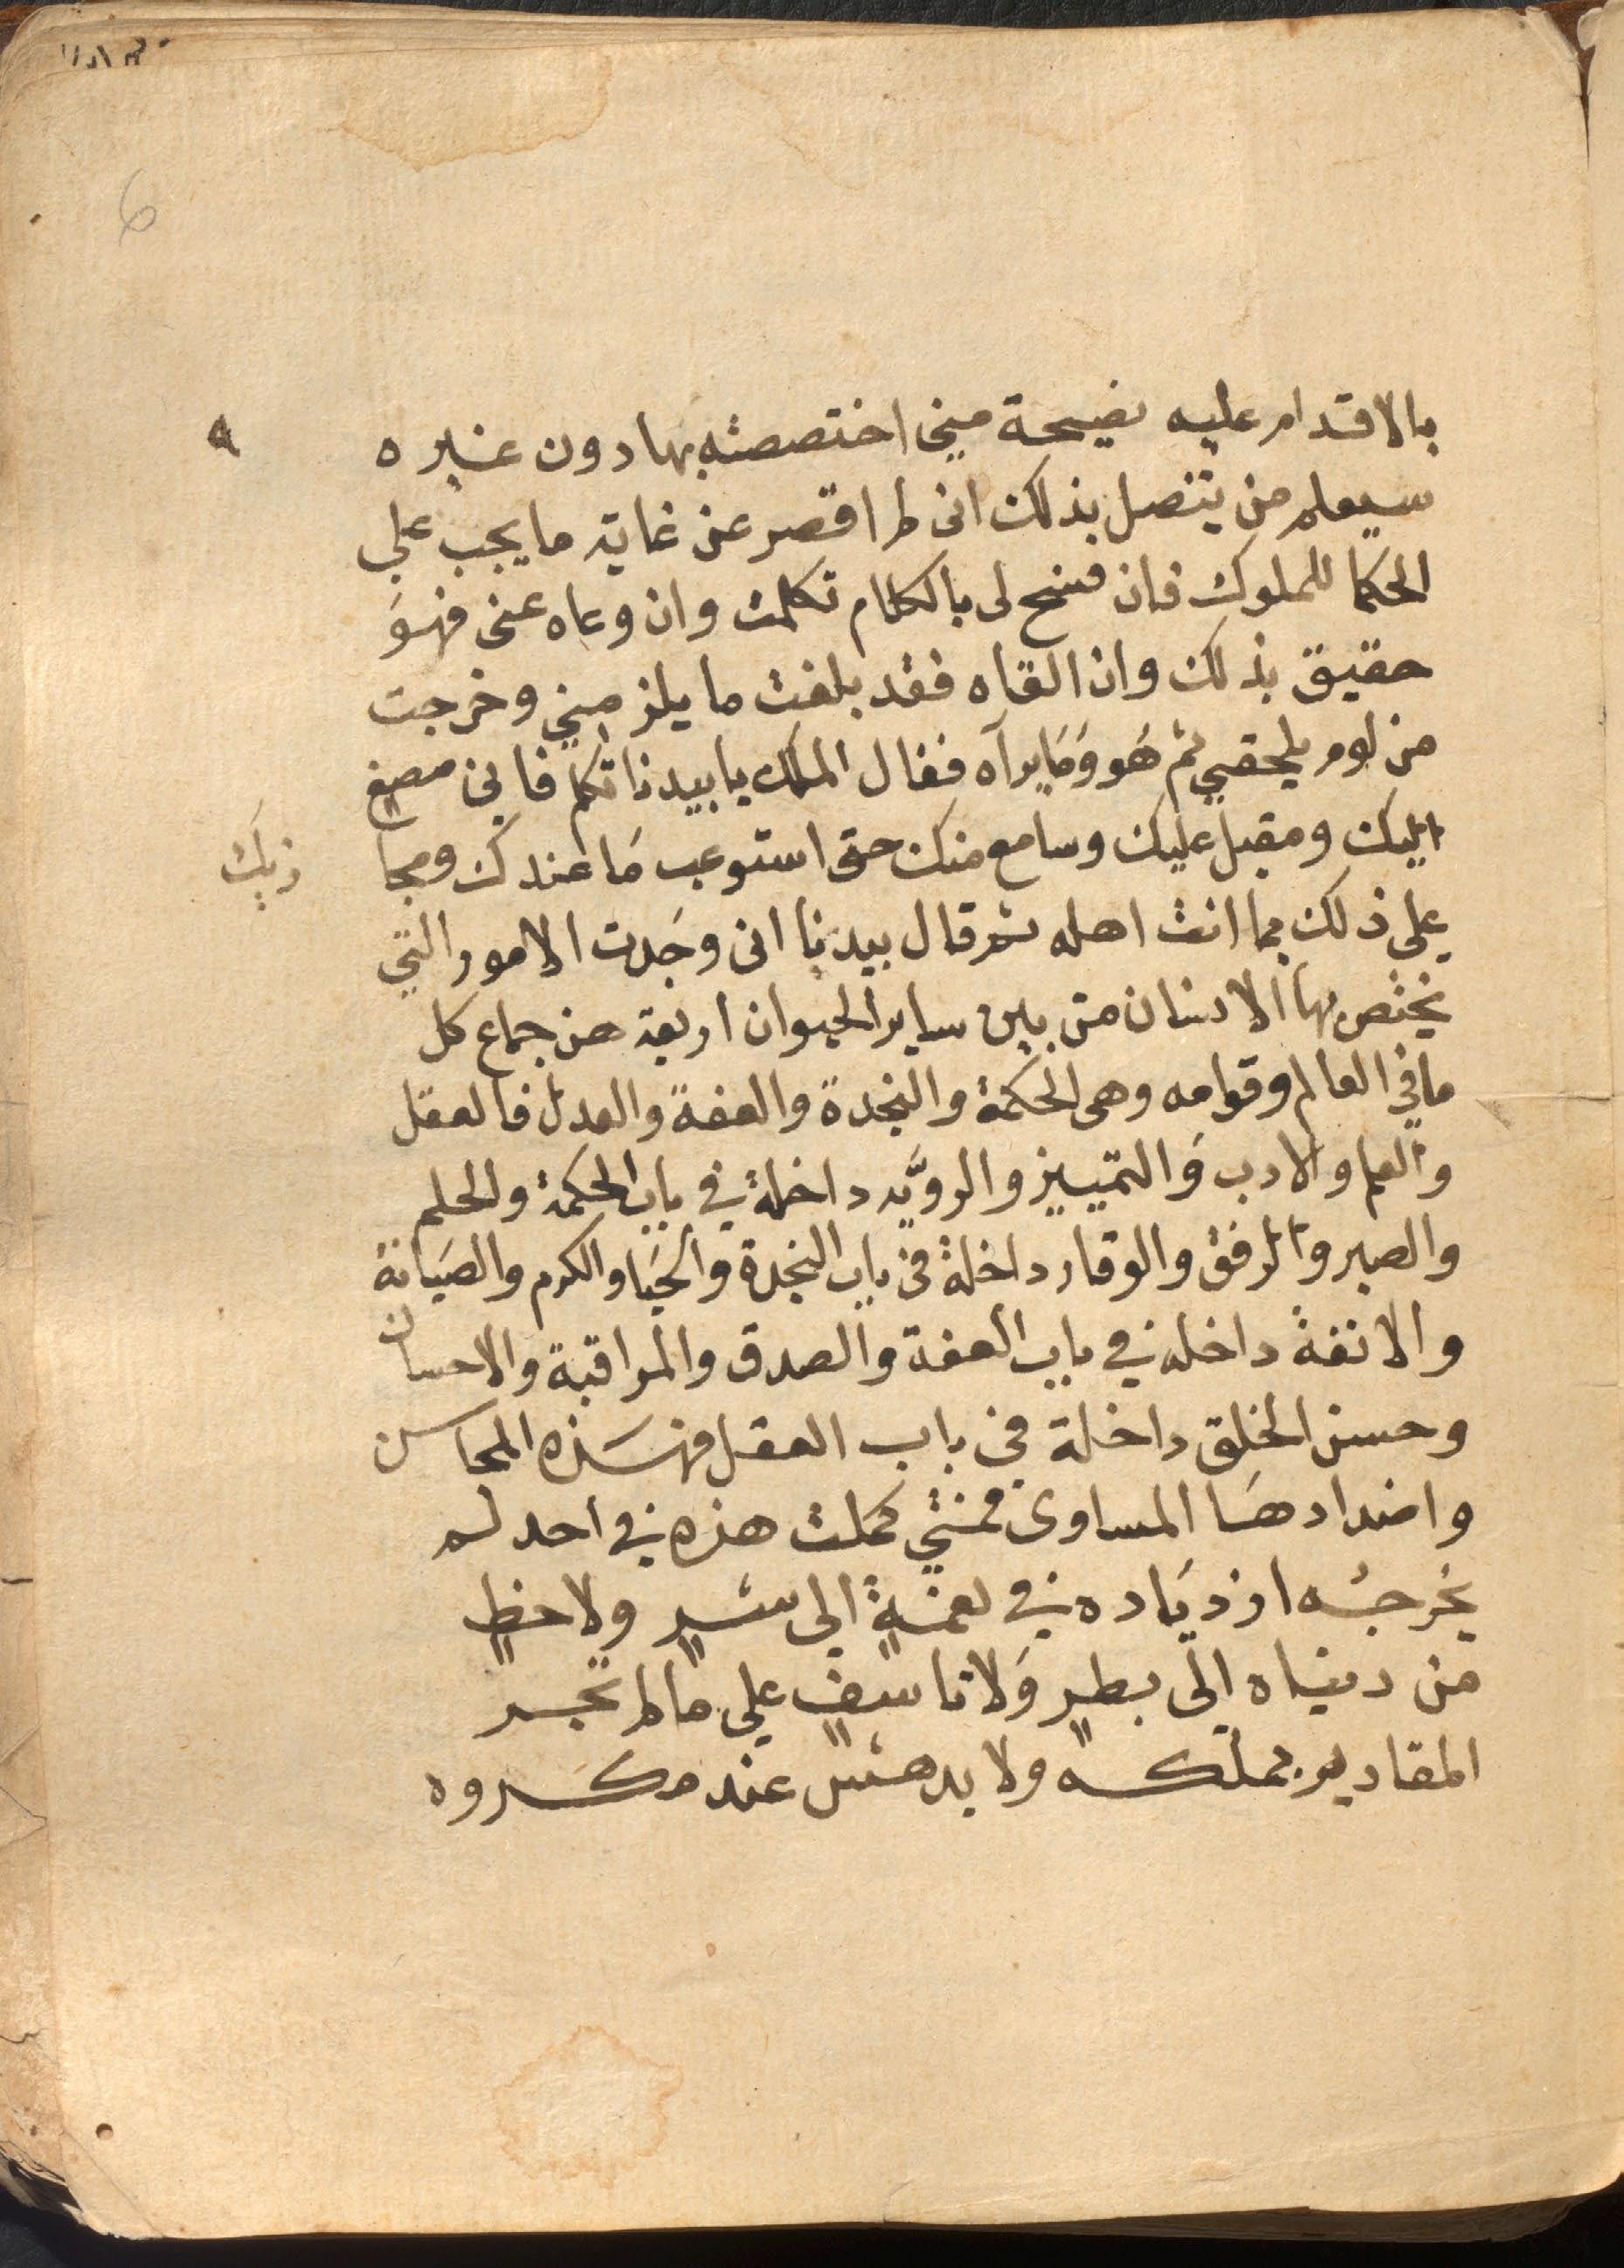 6
بالاقدام عليه نصيحة مني اختصصته بها دون غيره
سيعلم من يتصل بذلك انى لم اقصر عن غاية ما يجب علي
الحكما للملوك فان فسح لى بالكلام تكلمت وان وعاه عنى فهوَ
حقيق بذلك وان القاه فقد بلغت ما يلزمني وخرجت
من لوم يلحقني ثم هَو وَمَا يرآه فقال الملك يا بيدنا تكلم فاني مصغٍ
اليك ومقبل عليك وسامع منك حتى استوعب مَا عندك ومجا
زيك
على ذلك بما انت اهله ثم قال بيدنا انى وجَدت الامور التي
يختص بها الانسان من بين ساير الحيوان اربعة هن جماع كل
ما في العالم وقوامه وهى الحكمة والنجدة والعفة والعدل فالعقل
والعلم والادب وَالتمييز والروَّيه داخلة في باب الحكمة والحلم
والصبر والرفق والوقار داخلة في باب النجدة والحَيا والكرم والصَيانة
والانفة داخله في باب العفة والصدق والمراقبة والاحسان
وحسن الخلق داخلة في باب العقل فهَذه المحاسن
واضدادهَا المساوى فمتي كملت هذه في احد لم
يخرجه ازديَاده في نعمةٍ الى شرٍ ولا حظٍ
من دنياه الى بطرٍ وَلا تاسفٍ علي ما لم تجر
المقادير بملكه ولا يدهش عند مكروه